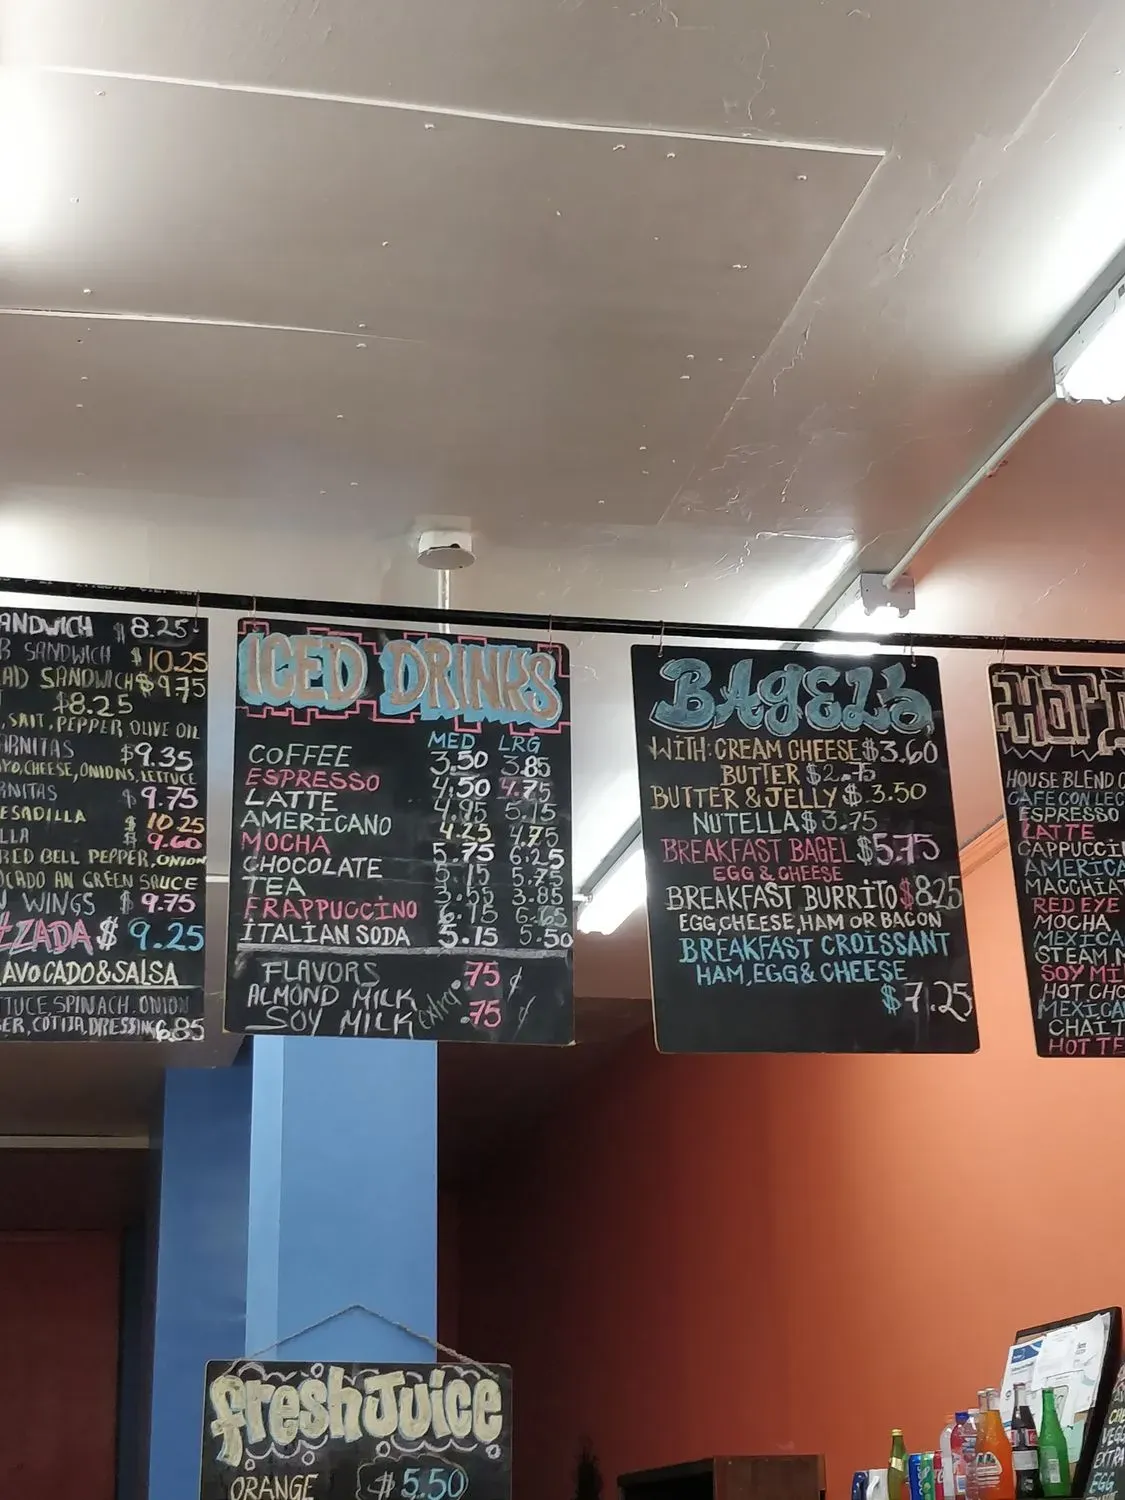 ANDWICH $8.25
SANDWICH $10.25
AD SANDWICH $9.75
$8.25
, SALT, PEPPER, OLIVE OIL
ARNITAS $9.35
YO, CHEESE, ONIONS, LETTUCE
RNITAS $9.75
ESADILLA $10.25
LLA $9.60
RED BELL PEPPER, ONION
OCADO AN GREEN SAUCE
N WINGS $9.75
ZADA $9.25
AVOCADO & SALSA
TTUCE, SPINACH, ONION
ER, COTIJA, DRESSING 6.85
ICED DRINKS
MED LRG
COFFEE 3.50 3.85
ESPRESSO 4.50 4.75
LATTE 4.95 5.15
AMERICANO 4.25 4.75
MOCHA 5.75 6.25
CHOCOLATE 5.15 5.75
TEA 3.55 3.85
FRAPPUCCINO 6.15 6.65
ITALIAN SODA 5.15 5.50
FLAVORS .75 ¢
ALMOND MILK extra .75 ¢
SOY MILK
BAGELS
WITH: CREAM CHEESE $3.60
BUTTER $2.75
BUTTER & JELLY $3.50
NUTELLA $3.75
BREAKFAST BAGEL $5.75
EGG & CHEESE
BREAKFAST BURRITO $8.25
EGG, CHEESE, HAM OR BACON
BREAKFAST CROISSANT
HAM, EGG & CHEESE
$7.25
HOT D
HOUSE BLEND
CAFE CON LEC
ESPRESSO
LATTE
CAPPUCCI
AMERICA
MACCHIAT
RED EYE
MOCHA
MEXICA
STEAM M
SOY MI
HOT CHO
MEXICA
CHAI T
HOT TE
fresh Juice
ORANGE $5.50
VEGG
EXTRA
EGG